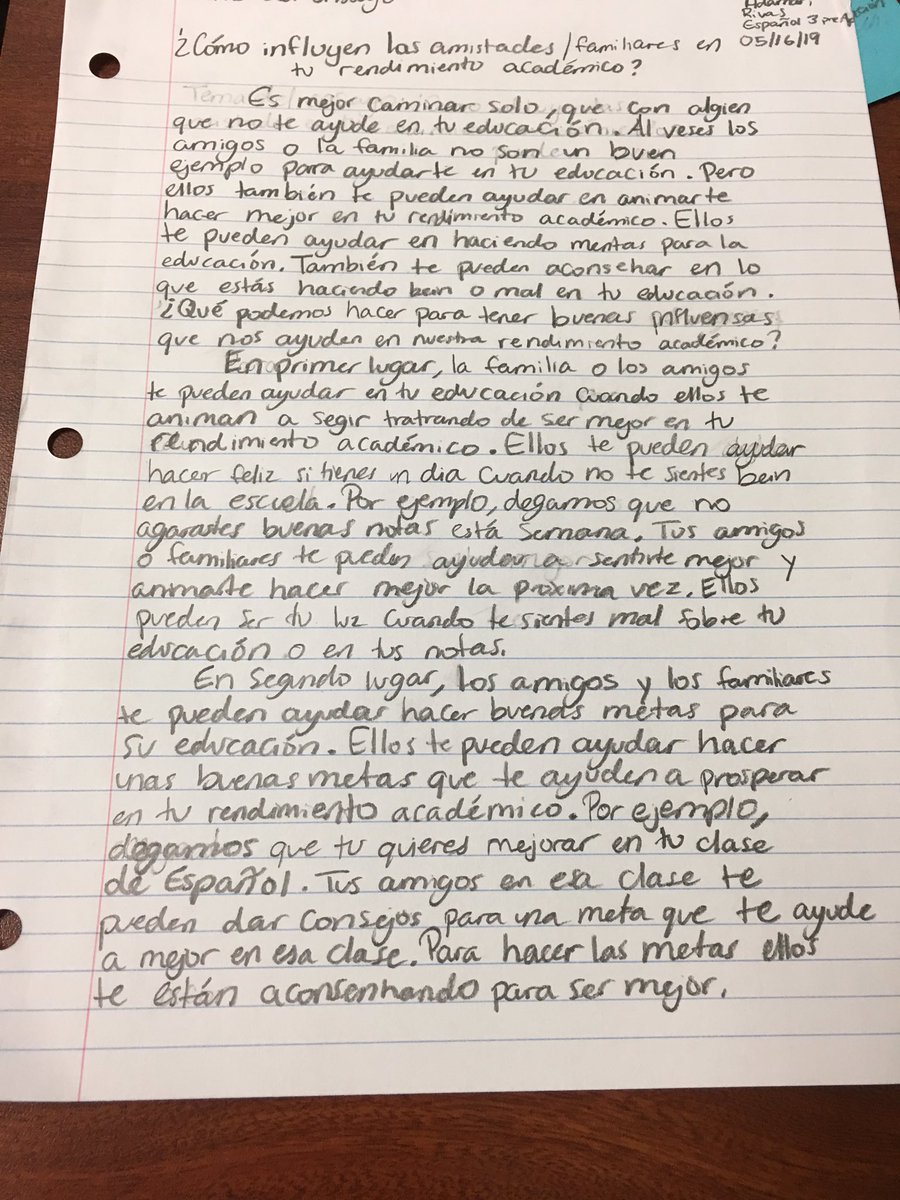 Rivas
Español 3 pre
05/16/19
¿Cómo influyen las amistades/familiares en
tu rendimiento académico?
Es mejor caminar solo, que con algien
que no te ayude en tu educación. Al veses los
amigos o la familia no son un buen
ejemplo para ayudarte en tu educación. Pero
ellos también te pueden ayudar en animarte
hacer mejor en tu rendimiento académico. Ellos
te pueden ayudar en haciendo mentas para la
educación. También te pueden aconsehar en lo
que estás haciendo bein o mal en tu educación.
¿Qué podemos hacer para tener buenas influensas
que nos ayuden en nuestra rendimiento académico?
En primer lugar, la familia o los amigos
te pueden ayudar en tu educación cuando ellos te
animan a segir tratrando de ser mejor en tu
rendimiento académico. Ellos te pueden ayudar
hacer feliz si tienes un dia cuando no te sientes bein
en la escuela. Por ejemplo, degamos que no
agarastes buenas notas está semana. Tus amigos
o familiares te pueden ayudar a sentirte mejor y
animarte hacer mejor la próxima vez. Ellos
pueden ser tu luz cuando te sientes mal sobre tu
educación o en tus notas.
En Segundo lugar, los amigos y los familiares
te pueden ayudar hacer buenas metas para
su educación. Ellos te pueden ayudar hacer
unas buenas metas que te ayuden a prosperar
en tu rendimiento académico. Por ejemplo,
degamos que tu quieres mejorar en tu clase
de Español. Tus amigos en esa clase te
pueden dar consejos para una meta que te ayude
a mejor en esa clase. Para hacer las metas ellos
te están aconsenhando para ser mejor.